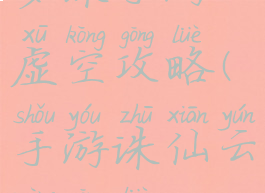 xū kōng gōng lüè
虚空攻略(
shǒu yóu zhū xiān yún
手游诛仙云